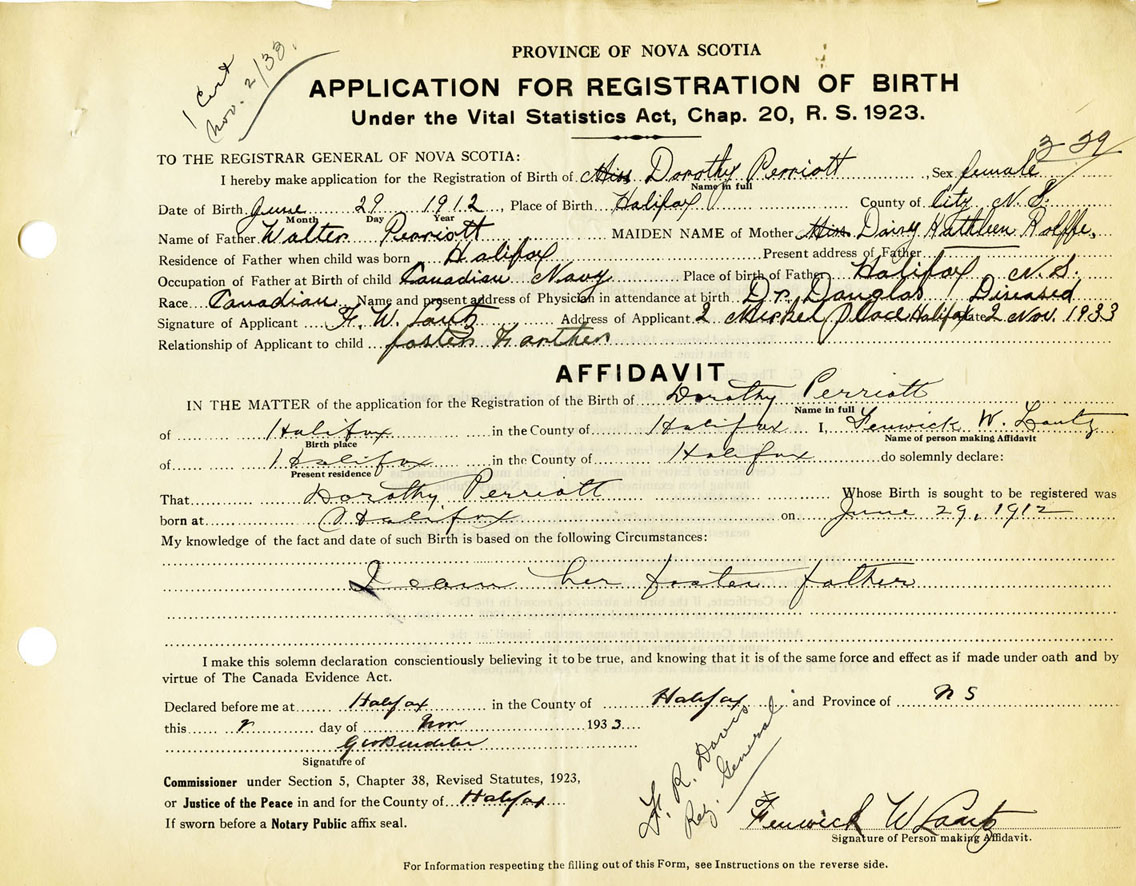 1 Cert
Nov. 2/33.
PROVINCE OF NOVA SCOTIA
APPLICATION FOR REGISTRATION OF BIRTH
Under the Vital Statistics Act, Chap. 20, R. S. 1923.
3 39
TO THE REGISTRAR GENERAL OF NOVA SCOTIA:
I hereby make application for the Registration of Birth of Miss Dorothy Perriott, Sex female
Name in full
Date of Birth June 29 1912, Place of Birth Halifax County of City N. S.
Month Day Year
Name of Father Walter Perriott MAIDEN NAME of Mother Miss Daisy Kathleen Rolffe,
Residence of Father when child was born Halifax Present address of Father
Occupation of Father at Birth of child Canadian Navy Place of birth of Father Halifax N. S.
Race Canadian Name and present address of Physician in attendance at birth Dr. Douglas Diseased
Signature of Applicant F. W. Lantz Address of Applicant 2 Place Halifax Date 2 Nov. 1933
Relationship of Applicant to child foster Farther
AFFIDAVIT
IN THE MATTER of the application for the Registration of the Birth of Dorothy Perriott
Name in full
of Halifax in the County of Halifax I, Fenwick W. Lantz
Birth place Name of person making Affidavit
of Halifax in the County of Halifax do solemnly declare:
Present residence
That Dorothy Perriott Whose Birth is sought to be registered was
born at Halifax on June 29, 1912
My knowledge of the fact and date of such Birth is based on the following Circumstances:
I am her foster father
I make this solemn declaration conscientiously believing it to be true, and knowing that it is of the same force and effect as if made under oath and by
virtue of The Canada Evidence Act.
Declared before me at Halifax in the County of Halifax and Province of N S
this 2 day of Nov 1933
Signature of
Commissioner under Section 5, Chapter 38, Revised Statutes, 1923,
or Justice of the Peace in and for the County of Halifax
If sworn before a Notary Public affix seal.
F. R. Davis
Reg. General
Fenwick W Lantz
Signature of Person making Affidavit.
For Information respecting the filling out of this Form, see Instructions on the reverse side.